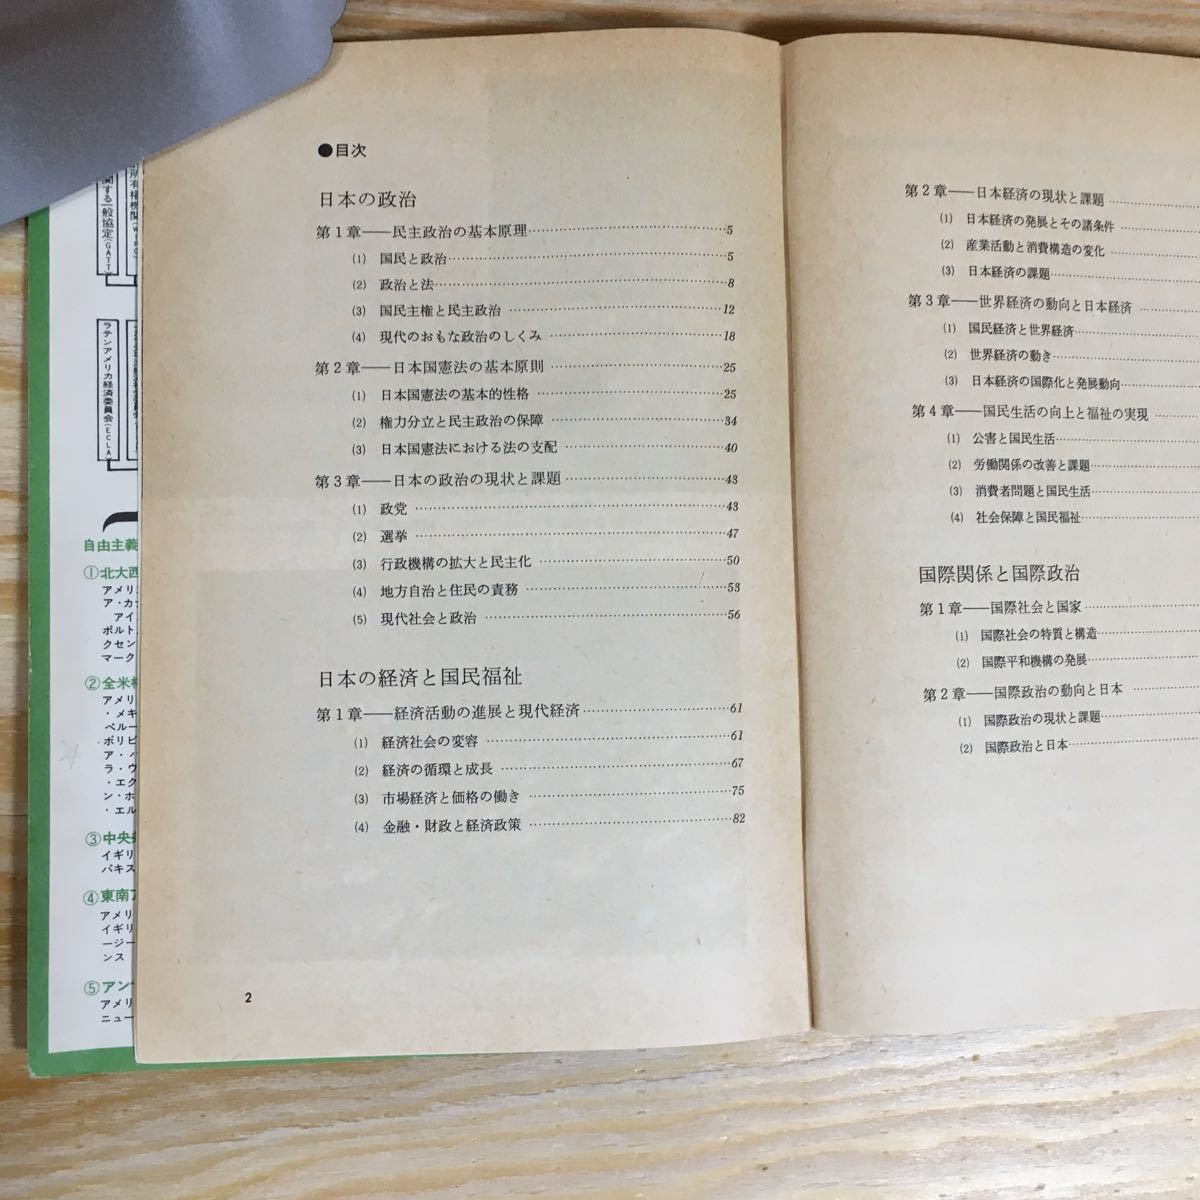 ●目次
日本の政治
第1章――民主政治の基本原理……5
(1) 国民と政治……5
(2) 政治と法……8
(3) 国民主権と民主政治……12
(4) 現代のおもな政治のしくみ……18
第2章――日本国憲法の基本原則……25
(1) 日本国憲法の基本的性格……25
(2) 権力分立と民主政治の保障……34
(3) 日本国憲法における法の支配……40
第3章――日本の政治の現状と課題……43
(1) 政党……43
(2) 選挙……47
(3) 行政機構の拡大と民主化……50
(4) 地方自治と住民の責務……53
(5) 現代社会と政治……56
日本の経済と国民福祉
第1章――経済活動の進展と現代経済……61
(1) 経済社会の変容……61
(2) 経済の循環と成長……67
(3) 市場経済と価格の働き……75
(4) 金融・財政と経済政策……82
2
第2章――日本経済の現状と課題……
(1) 日本経済の発展とその諸条件……
(2) 産業活動と消費構造の変化……
(3) 日本経済の課題……
第3章――世界経済の動向と日本経済……
(1) 国民経済と世界経済……
(2) 世界経済の動き……
(3) 日本経済の国際化と発展動向……
第4章――国民生活の向上と福祉の実現……
(1) 公害と国民生活……
(2) 労働関係の改善と課題……
(3) 消費者問題と国民生活……
(4) 社会保障と国民福祉……
国際関係と国際政治
第1章――国際社会と国家……
(1) 国際社会の特質と構造……
(2) 国際平和機構の発展……
第2章――国際政治の動向と日本……
(1) 国際政治の現状と課題……
(2) 国際政治と日本……
関する一般協定(GATT)
所有権機関(WIPO)
ラテンアメリカ経済委員会(ECLA)
自由主義
①北大西
アメリ
ア・カ
アイ
ポルト
クセン
マーク
②全米
アメリ
・メキ
ペルー
ボリビ
ア・
ラ・ウ
・エク
ン・ホ
・エル
③中央
イギリ
パキス
④東南ア
アメリ
イギリ
ージー
ンス
⑤アン
アメリ
ニュー